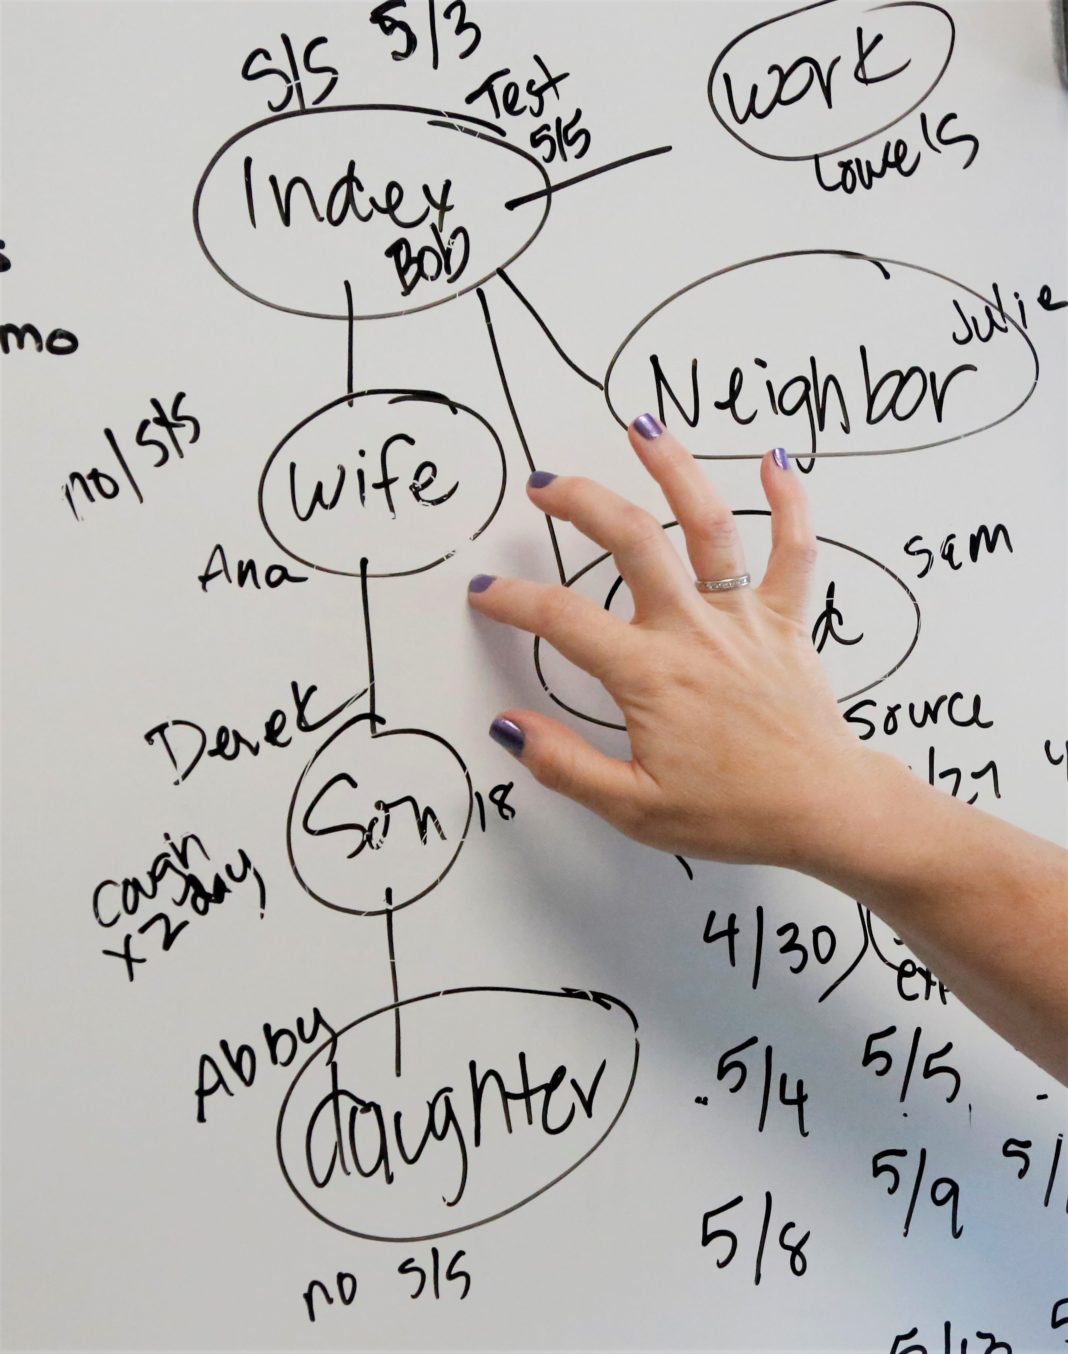 S/S 5/3
Test
5/5
Index
Bob
work
Lowe's
Julie
Neighbor
mo
no/S/S
wife
Ana
Sam
source
Derek
Son 18
cough
x2 days
4/30
Abby
daughter
no S/S
5/4 5/5
5/8 5/9